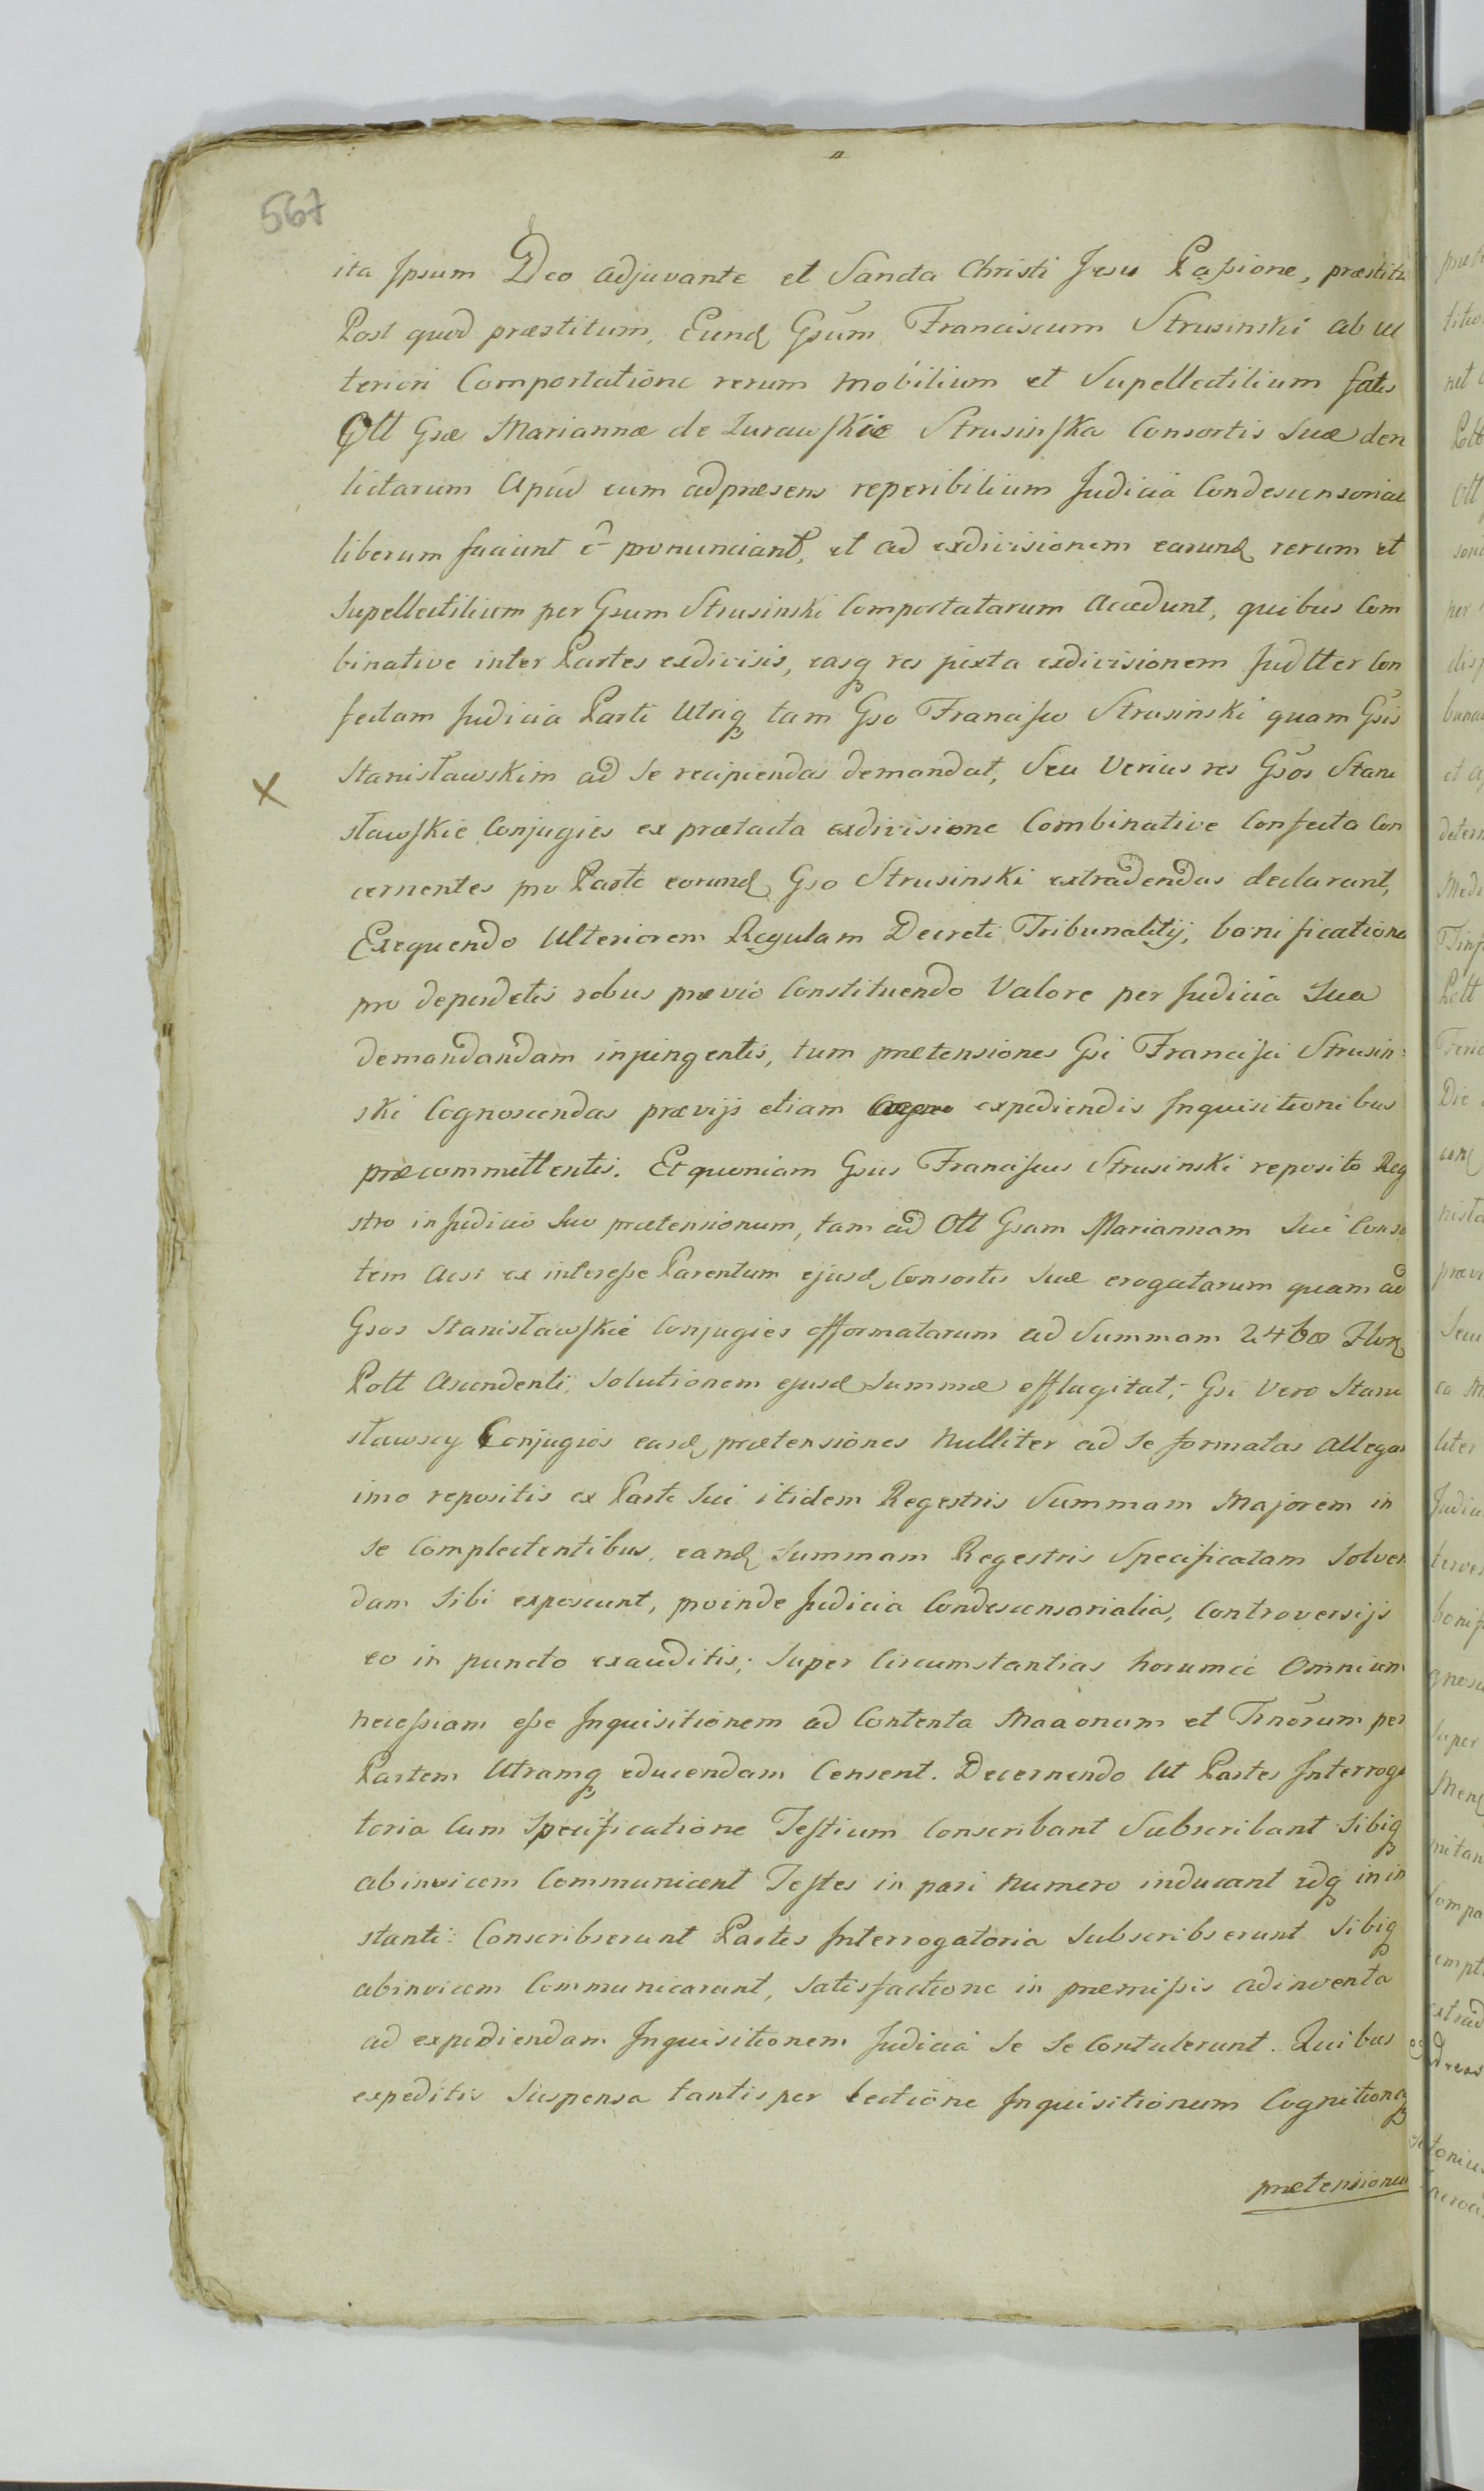 567
ita Ipsum Deo adjuvante et Sancta Christi Jesu Passione, præstiti
Post quod præstitum, Eund Gsum Franciscum Strusinski ab ul
teriori Comportatione rerum mobilium et Supellectilium fatis
Ott Gsæ Mariannæ de Zurawskie Strusinska Consortis suæ dere
lictarum apud eum adpræsens reperibilium Judicia Condescensorial
liberum faciunt & pronunciant, et ad exdivisionem earund rerum et
Supellectilium per Gsum Strusinski Comportatarum accedunt, quibus Com
binative inter Partes exdivisis, easq res juxta exdivisionem Judtter Con
fectam Judicia Parti Utriq tam Gso Francisco Strusinski quam Gsis
X Stanisławskim ad se recipiendas demandat, Seu Verius res Gsos Stani
sławskie Conjuges ex prætacta exdivisione Combinative Confecta Con
cernentes pro Parte eorund Gso Strusinski extradendas declarant,
Exequendo Ulteriorem Regulam Decreti Tribunalitij, bonificatione
pro deperditis rebus prævio Constituendo Valore per Judicia sua
demandandam injungentis, tum prætensiones Gsi Francisci Strusin
ski Cognoscendas prævijs etiam expediendis Inquisitionibus
præcommittentis. Et quoniam Gsus Franciscus Strusinski reposito Reg
stro in Judicio suo prætensionum, tam ad Ott Gsam Mariannam sui Conso
tem acsi ex interesse Parentum ejusd Consortis suæ erogatarum quam ad
Gsos Stanisławskie Conjuges efformatarum ad Summam Flor
Pott Ascendenti, solutionem ejusd summæ efflagitat; Gsi Vero Stani
sławscy Conjuges easd prætensiones nulliter ad se formatas allegan
imo repositis ex Parte sui itidem Regestris Summam Majorem in
se Complectentibus, eand summam Regestris Specificatam solven
dam sibi exposcunt, proinde Judicia Condescensorialia, Controversijs
eo in puncto exauditis; super Circumstantias horumce Omnium
necessiam esse Inquisitionem ad Contenta Maaonum et Tinorum per
Partem Utramq educendam Censent. Decernendo ut Partes Interroga
toria Cum Specificatione Testium Conscribant Subscribant sibiq
abinvicem Communicent Testes in pari numero inducant idq in in
stanti: Conscribserunt Partes Interrogatoria subscribserunt sibiq
abinvicem Communicarunt, satisfactione in præmissis adinventa
ad expediendam Inquisitionem Judicia se se Contulerunt. Quibus
expeditis suspensa tantisper lectione Inquisitionum Cognitioneq
prætensionu